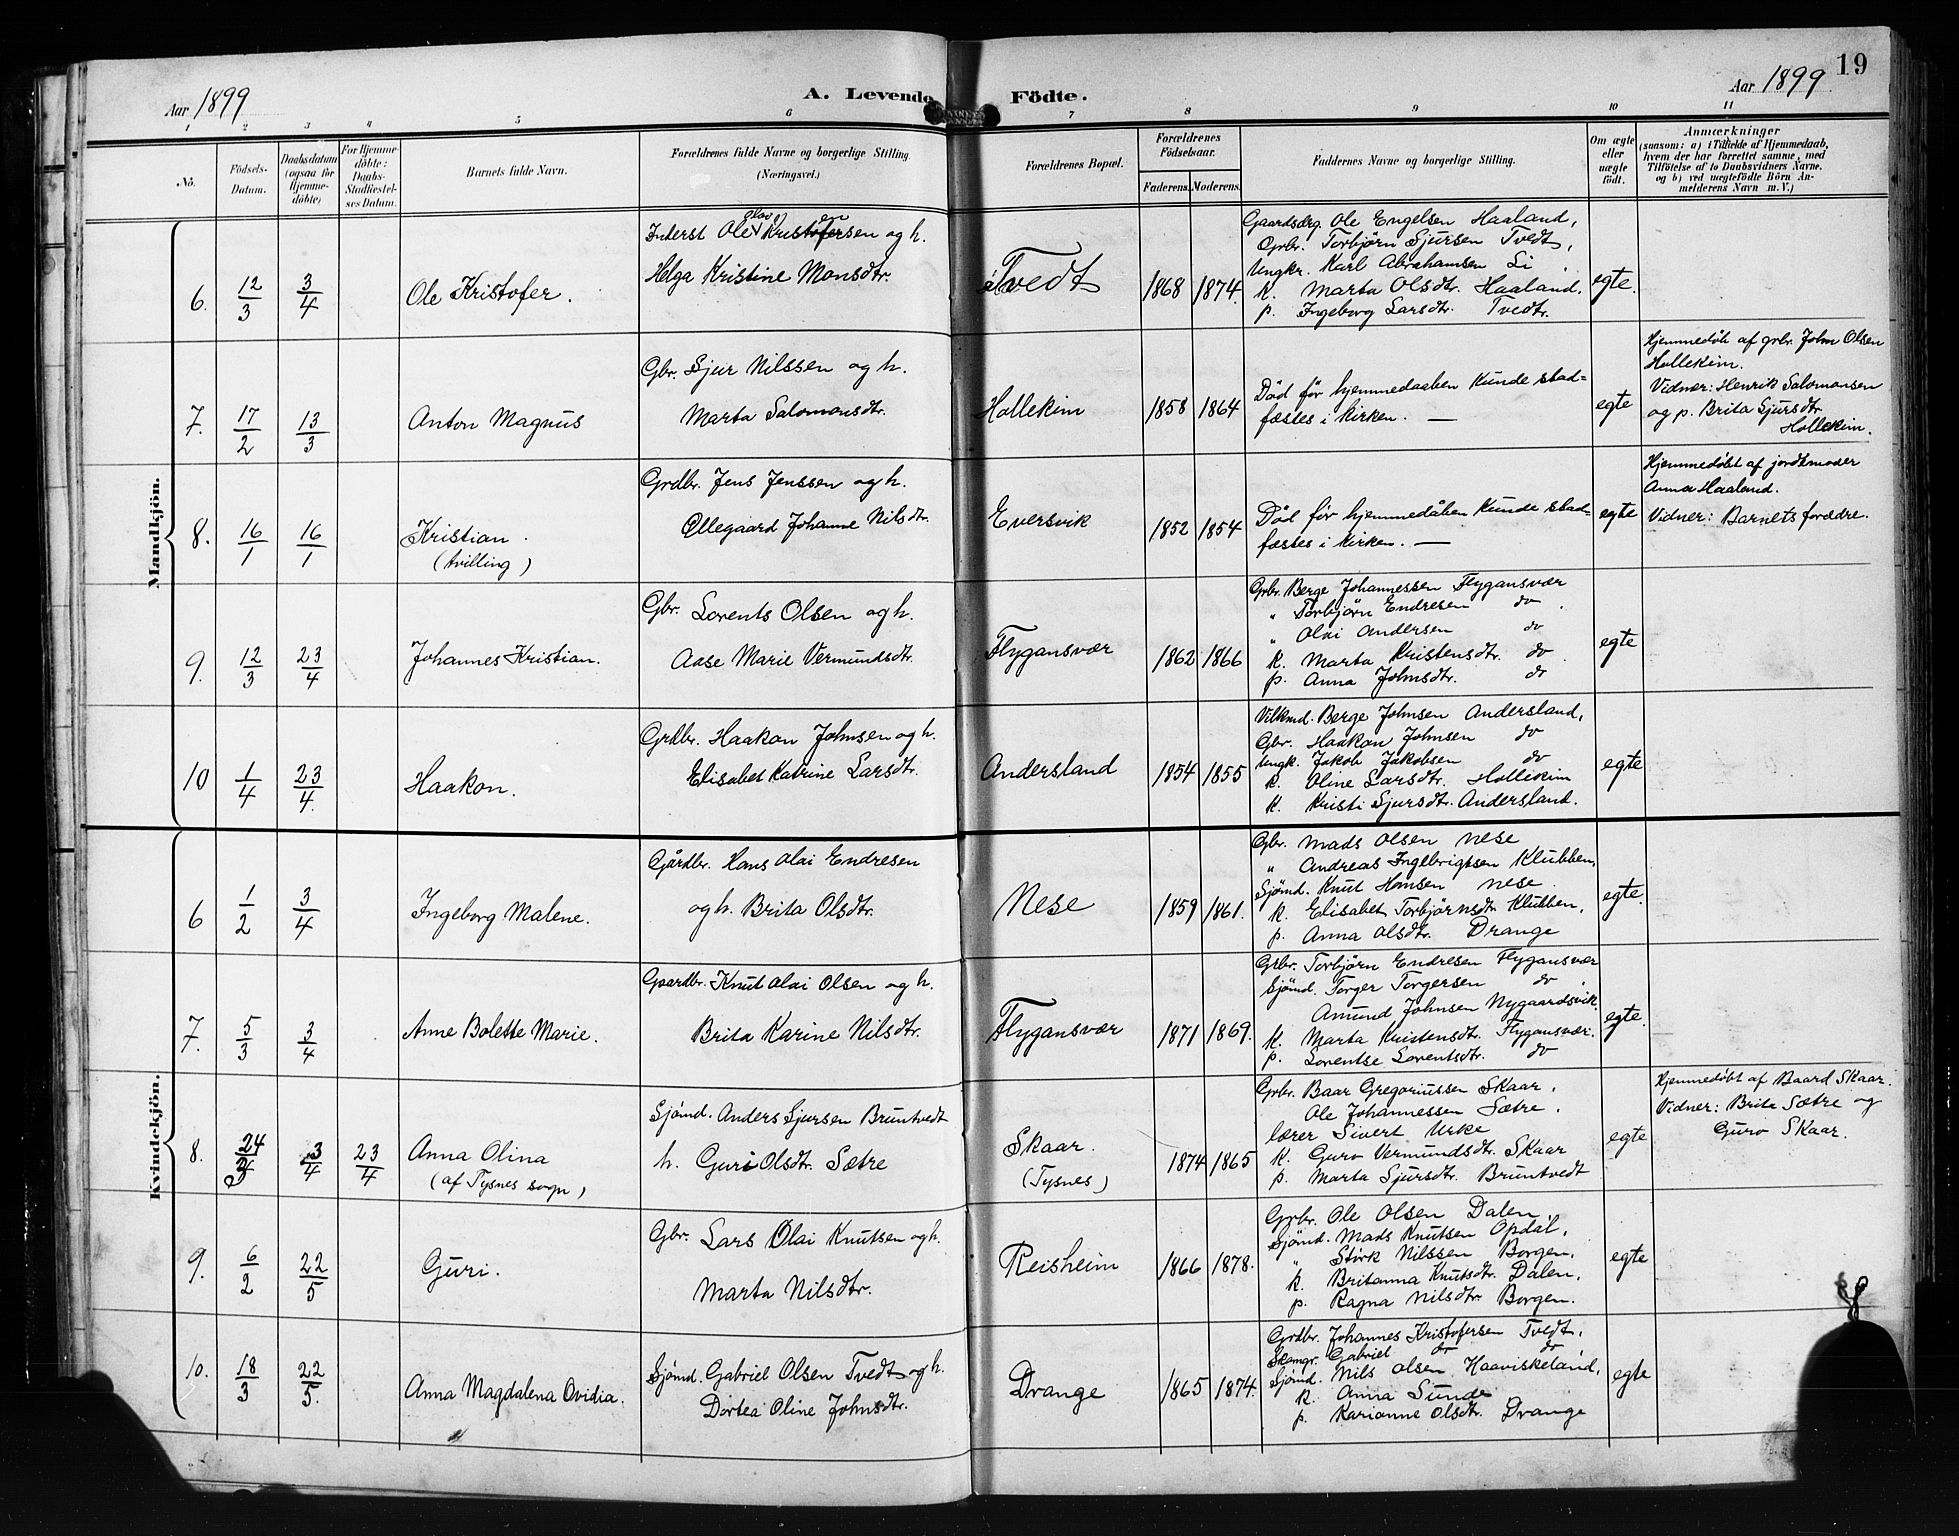 Aar 1899
A. Levende Födte.
Aar 1899
19
1 2 3 4 5 6 7 8 9 10 11
No.
Födsels-Datum.
Daabsdatum (ogsaa for Hjemme-döbte)
For Hjemme-döbte: Daabs-Stadfæstel-ses Datum.
Barnets fulde Navn.
Forældrenes fulde Navne og borgerlige Stilling. (Næringsvei.)
Forældrenes Bopæl.
Forældrenes Födselsaar.
Faderens. Moderens.
Faddernes Navne og borgerlige Stilling.
Om ægte eller uægte födt.
Anmærkninger
(saasom: a) i Tilfælde af Hjemmedaab, hvem der har forrettet samme, med Tilföielse af to Daabsvidners Navne, og b) ved uægtefödte Börn An-melderens Navn m. V.)
Mandkjön.
6. 12/3 3/4 Ole Kristofer.
Inderst Ole Kristofersen og h.
Helga Kristine Monsdtr.
Tvedt 1868 1874.
Gaardsdrg. Ole Engelsen Haaland,
Grbr. Torbjörn Sjursen Tvedt,
Ungkr. Karl Abrahamsen Li
k. Marta Olsdtr. Haaland.
p. Ingeborg Larsdtr. Tvedt.
egte.
7. 17/2 13/3 Anton Magnus
Gbr. Sjur Nilssen og h.
Marta Salomonsdtr.
Hollekim 1858 1864
Död för hjemmedaaben kunde stad=
fæstes i kirken. —
egte
Hjemmedöbt af grbr. John Olsen
Hollekim.
Vidner: Henrik Salomonsen
og p. Brita Sjursdtr.
Hollekim.
8. 16/1 16/1 Kristian.
(tvilling)
Grdbr. Jens Jenssen og h.
Ollegaard Johanne Nilsdtr.
Eversvik 1852 1854
Död för hjemmedåben kunde stad=
fæstes i kirken. —
egte
Hjemmedöbt af jordemoder
Anna Haaland.
Vidner: Barnets forædre.
9. 12/3 23/4 Johannes Kristian.
Gbr. Lorents Olsen og h.
Aase Marie Vermundsdtr.
Flygansvær 1862 1866
Grbr. Berge Johannessen Flygansvær
" Torbjörn Endresen do
" Olai Andersen do
k. Marta Kristensdtr. do
p. Anna Johnsdtr. do
egte
10 1/4 23/4. Haakon.
Grdbr. Haakon Johnsen og h.
Elisabet Katrine Larsdtr.
Andersland 1854 1855
Vilkmd. Berge Johnsen Andersland,
Gbr. Haakon Johnsen do
Ungk. Jakob Jakobsen do
k. Oline Larsdtr. Hollekim
k. Kristi Sjursdtr. Andersland.
egte
Kvindekjön.
6 1/2 3/4 Ingeborg Malene.
Gårdbr. Hans Olai Endresen
og h. Brita Olsdtr.
Nese 1859 1861.
Gbr. Mads Olsen Nese
" Andreas Ingebrigtsen Klubben,
Sjömd. Knut Hansen Nese.
k. Elisabet Torbjörnsdtr. Klubben,
p. Anna Olsdtr. Drange
egte.
7. 5/3 3/4 Anne Bolette Marie.
Gaardbr. Knut Olai Olsen og h.
Brita Karine Nilsdtr.
Flygansvær 1871 1869.
Grbr. Torbjörn Endresen Flygansvær
Sjömd. Torger Torgersen do,
Amund Johnsen Nygaardsvik
k. Marta Kristensdtr. Flygansvær.
p. Lorentse Lorentsdtr. do
egte.
8. 24 3/4 23/4 Anna Olina
(af Tysnes sogn)
Sjömd. Anders Sjursen Bruntvedt
h. Guri Olsdtr. Sætre
Skaar. (Tysnes) 1874 1865
Grbr. Baar Gregoriussen Skaar.
Ole Johannessen Sætre.
lærer Sivert Urke
k. Guro Vermundsdtr. Skaar
p. Marta Sjursdtr. Bruntvedt
egte
Hjemmedöbt af Baard Skaar.
Vidner: Brita Sætre og
Guro Skaar.
9. 6/2 22/5 Guri.
Gbr. Lars Olai Knutsen og h.
Marta Nilsdtr.
Reisheim 1866 1878.
Grbr. Ole Olsen Dalen.
Sjömd. Mads Knutsen Opdal,
" Störk Nilssen Borgen,
k. Britanna Knutsdtr. Dalen,
p. Ragna Nilsdtr Borgen.
egte
10. 18/3 22/5. Anna Magdalena Ovidia.
Sjömd. Gabriel Olsen Tvedt og h.
Dortea Oline Johnsdtr.
Drange 1865 1874.
Grdbr. Johannes Kristofersen Tvedt,
Skomgr. Gabriel do do
Sjömd. Nils Olsen Haaviskeland,
k. Anna Sunde
p. Karianne Olsdtr. Drange
egte